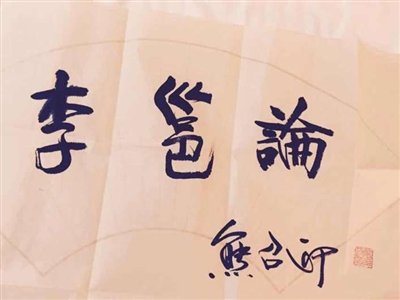 李邕論
熊召政